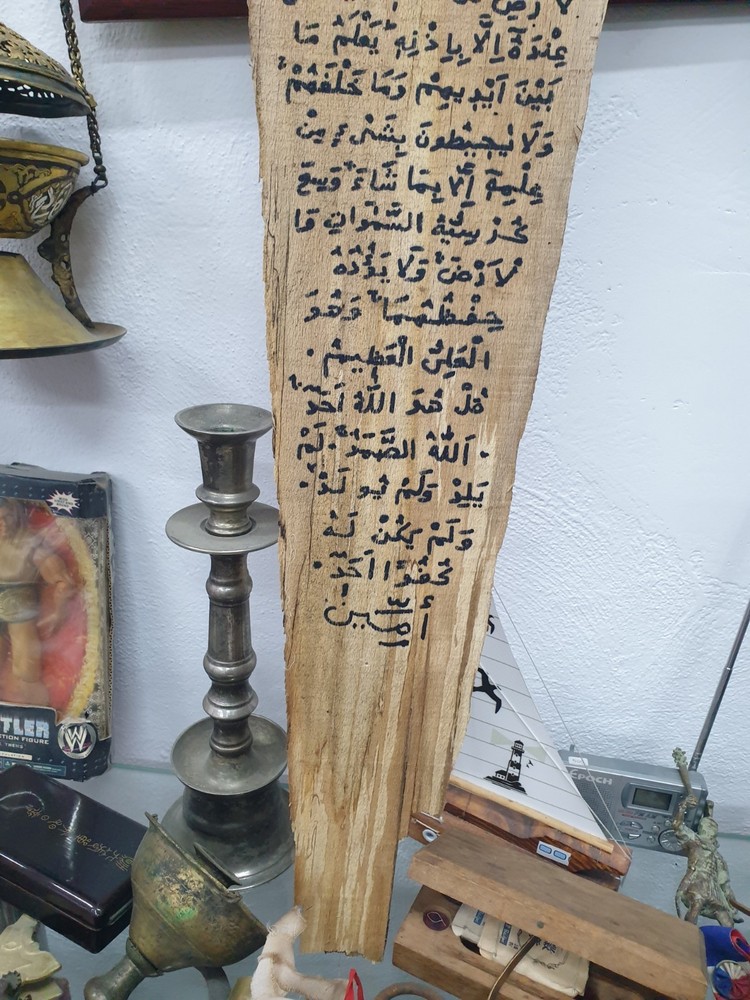 عِنْدَهٓ اِلَّا بِاِذْنِهٖ يَعْلَمُ مَا
بَيْنَ اَيْدِيهِمْ وَمَا خَلْفَهُمْ
وَلَا يُحِيطُونَ بِشَىْءٍ مِنْ
عِلْمِهٓ اِلَّا بِمَا شَاءَ وَسِعَ
كُرْسِيُّهُ السَّمٰوَاتِ وَا
لْاَرْضَ وَلَا يَؤُدُهُ
حِفْظُهُمَا وَهُوَ
الْعَلِىُّ الْعَظِيمُ .
قُلْ هُوَ اللّٰهُ اَحَدٌ
. اَللّٰهُ الصَّمَدُ . لَمْ
يَلِدْ وَلَمْ يُو لَدْ .
وَلَمْ يَكُنْ لَهُ
كُفُوًا اَحَدٌ .
أٰمِّينْ
TLER
TION FIGURE
W
EPOCH